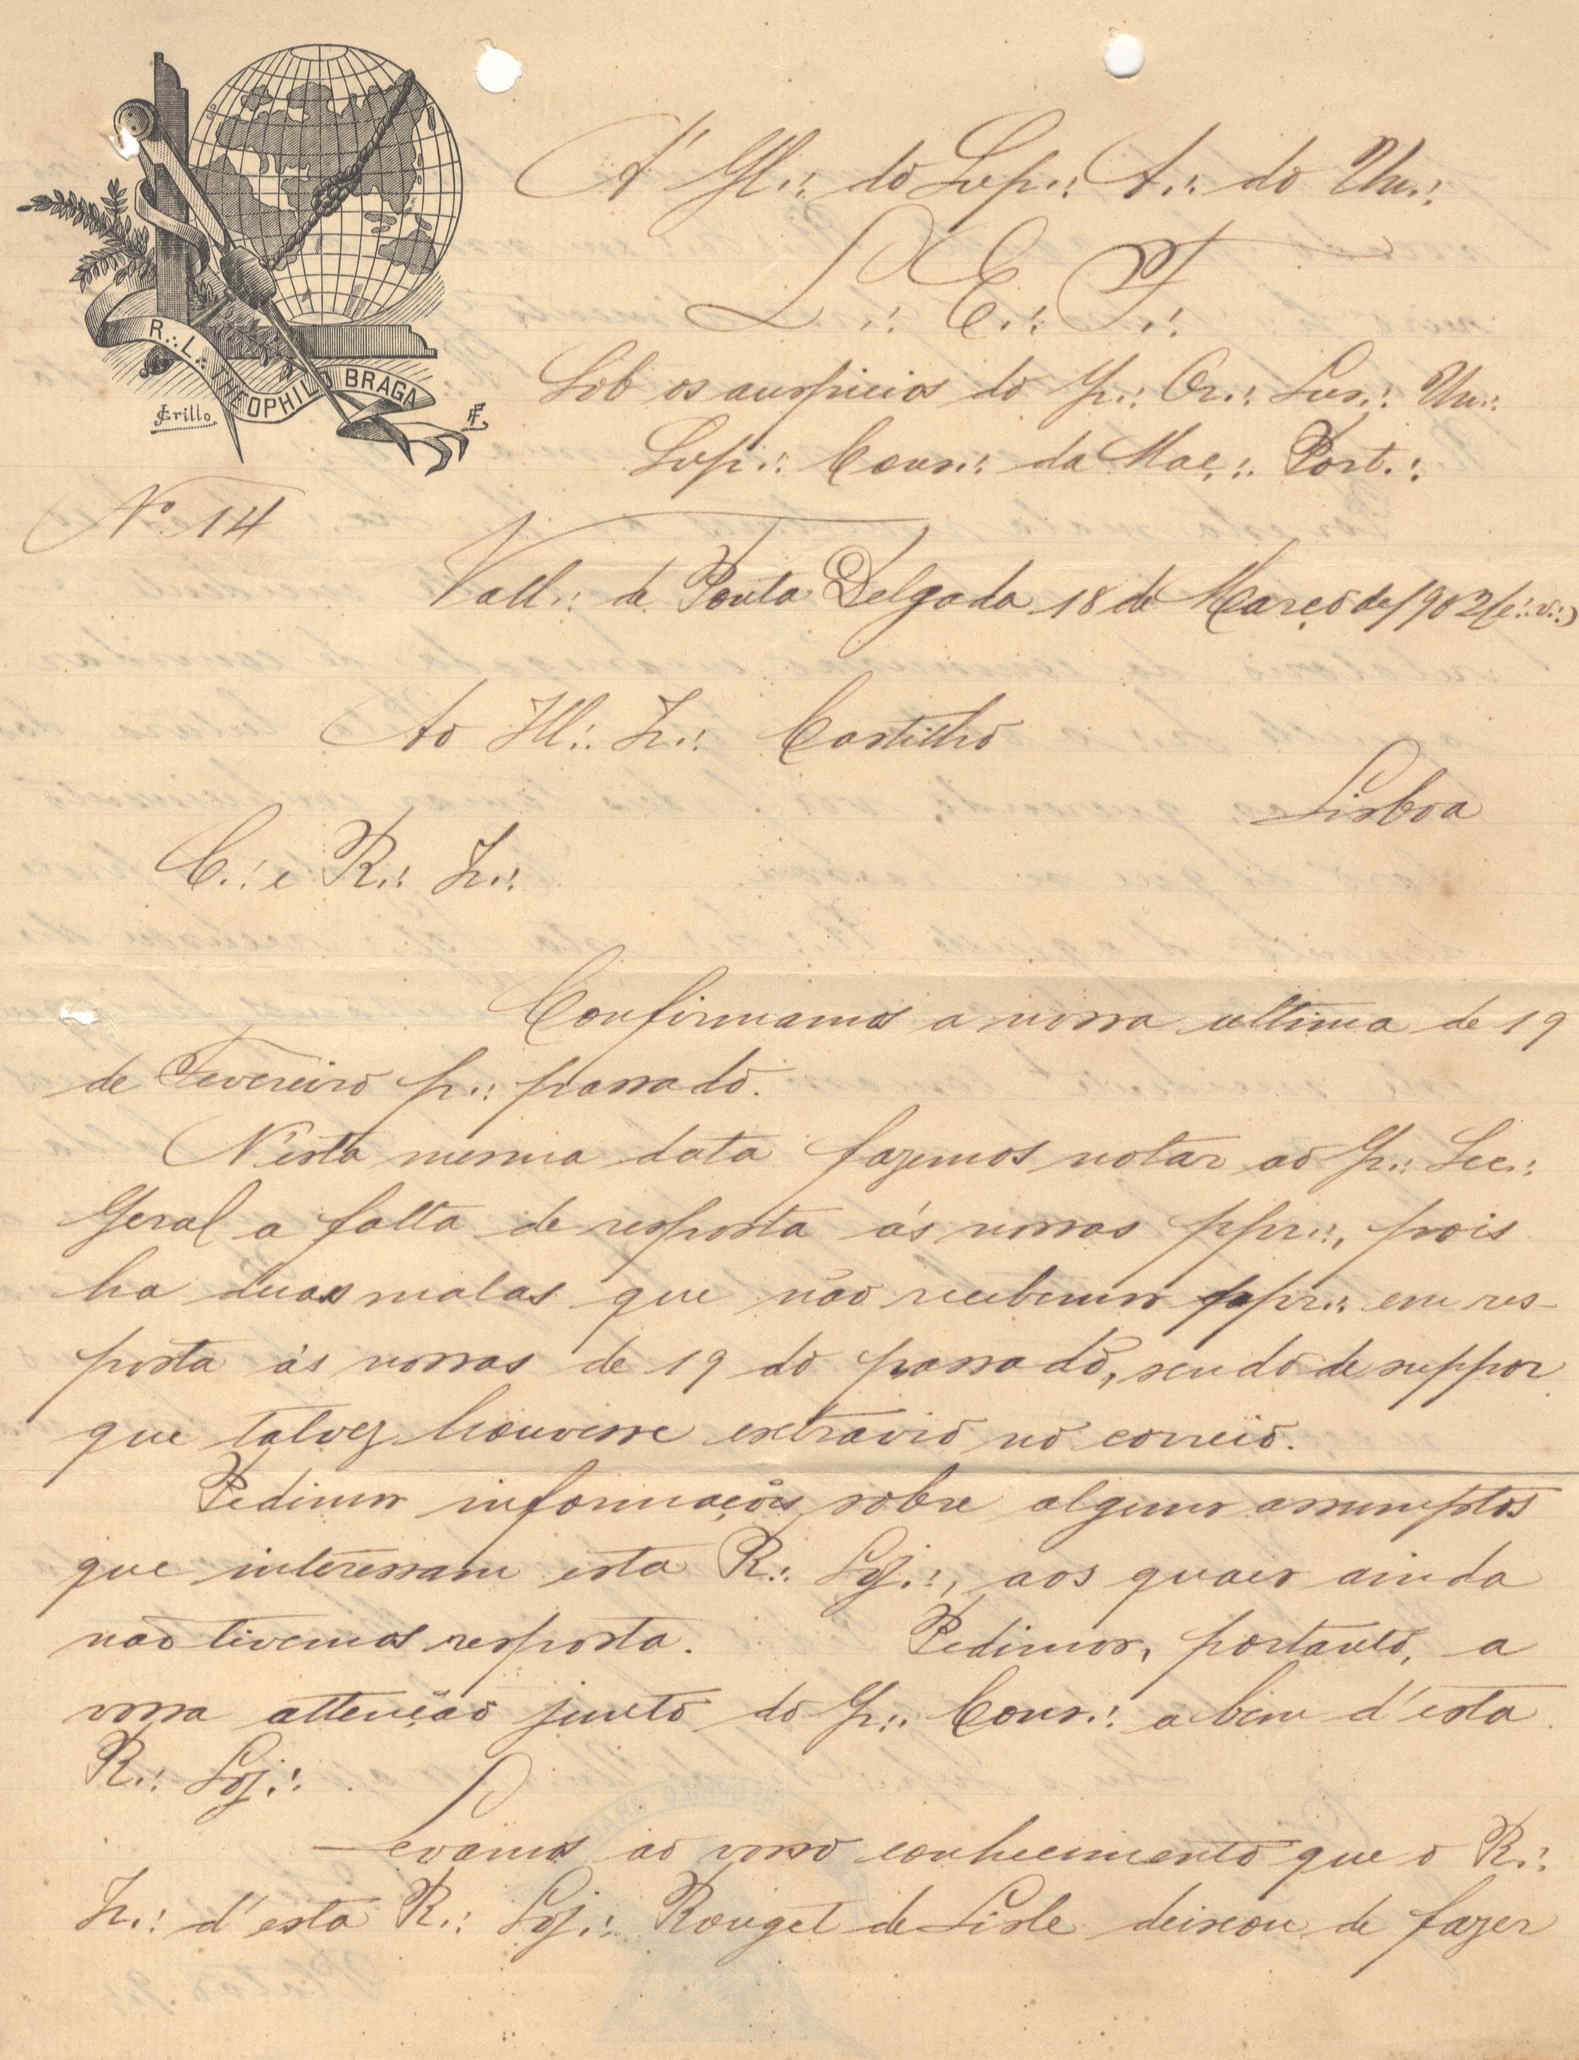 R∴ L∴ THEOPHILO BRAGA
Grillo
A' Gl∴ do Sup∴ A∴ do Un∴
L∴ E∴ F∴
Sob os auspicios do Gr∴ Or∴ Lus∴ Un∴
Sup∴ Cons∴ da Maç∴ Port∴
Nº 14
Vall∴ de Ponta Delgada 18 de Março de 1902 (e∴ v∴)
Ao Ill∴ Ir∴ Castilho
Lisboa
C∴ e R∴ Ir∴
Confirmamos a nossa ultima de 19
de Fevereiro p∴ passado.
N'esta mesma data fazemos notar ao Gr∴ Sec∴
Geral a falta de resposta ás nossas ppr∴, pois
ha duas malas que não recebemos ppr∴ em res-
posta ás nossas de 19 do passado, sendo de suppor
que talvez houvesse extravio no correio.
Pedimos informações sobre alguns assumptos
que interessam esta R∴ Loj∴, aos quaes ainda
não tivemos resposta. Pedimos, portanto, a
vossa attenção junto do Gr∴ Cons∴ a bem d'esta
R∴ Loj∴
Levamos ao vosso conhecimento que o R∴
Ir∴ d'esta R∴ Loj∴ Rouget de Lisle deixou de fazer